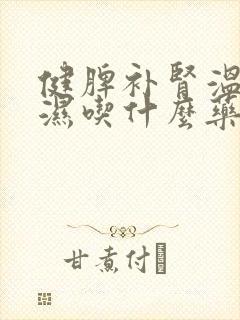 健脾补腎温
濕喫什麼藥
甘煮付